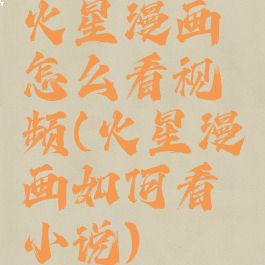 火星漫画
怎么看视
频(火星漫
画如何看
小说)